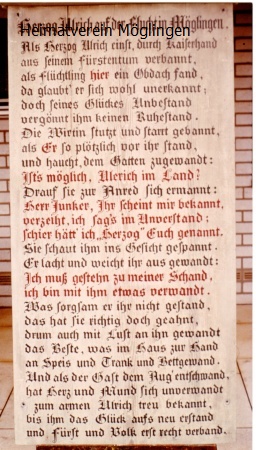 Heimatverein Möglingen
Herzog Ulrich auf der Flucht in Möglingen.
Als Herzog Ulrich einst, durch Kaiserhand
aus seinem Fürstentum verbannt,
als Flüchtling hier ein Obdach fand,
da glaubt' er sich wohl unerkannt;
doch seines Glückes Unbestand
vergönnt ihm keinen Ruhestand.
Die Wirtin stutzt und starrt gebannt,
als Er so plötzlich vor ihr stand,
und haucht, dem Gatten zugewandt:
Ist's möglich, Ulerich im Land?
Drauf sie zur Anred sich ermannt:
Herr Junker, Ihr scheint mir bekannt,
verzeiht, ich sag's im Unverstand;
schier hätt' ich „Herzog" Euch genannt.
Sie schaut ihm ins Gesicht gespannt.
Er lacht und weicht ihr aus gewandt:
Ich muß gestehn zu meiner Schand,
ich bin mit ihm etwas verwandt.
Was sorgsam er ihr nicht gestand,
das hat sie richtig doch geahnt,
drum auch mit Lust an ihn gewandt
das Beste, was im Haus zur Hand
an Speis und Trank und Bettgewand.
Und als der Gast dem Aug' entschwand,
hat Herz und Mund sich unverwandt
zum armen Ulrich treu bekannt,
bis ihm das Glück aufs neu erstand
und Fürst und Volk erst recht verband.